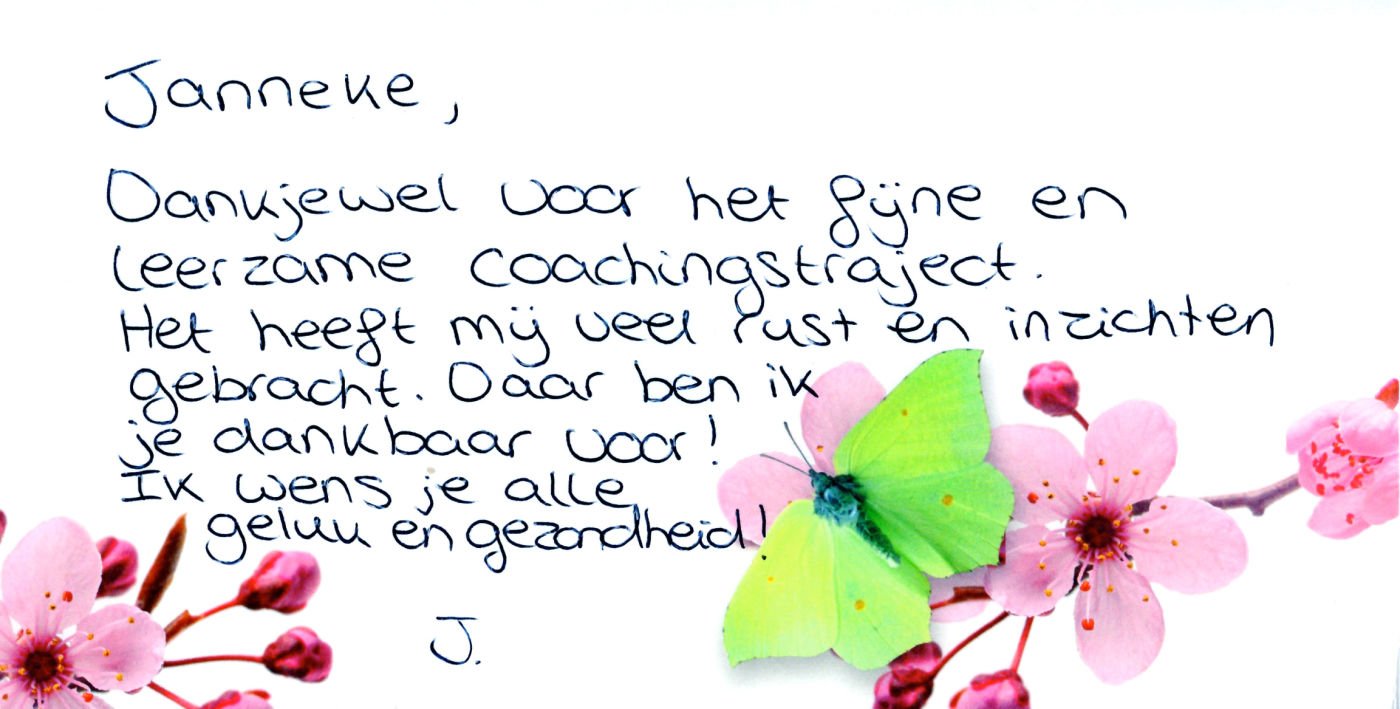 Janneke,
Dankjewel voor het fijne en
leerzame coachingstraject.
Het heeft mij veel rust en inzichten
gebracht. Daar ben ik
je dankbaar voor!
Ik wens je alle
geluk en gezondheid!
J.